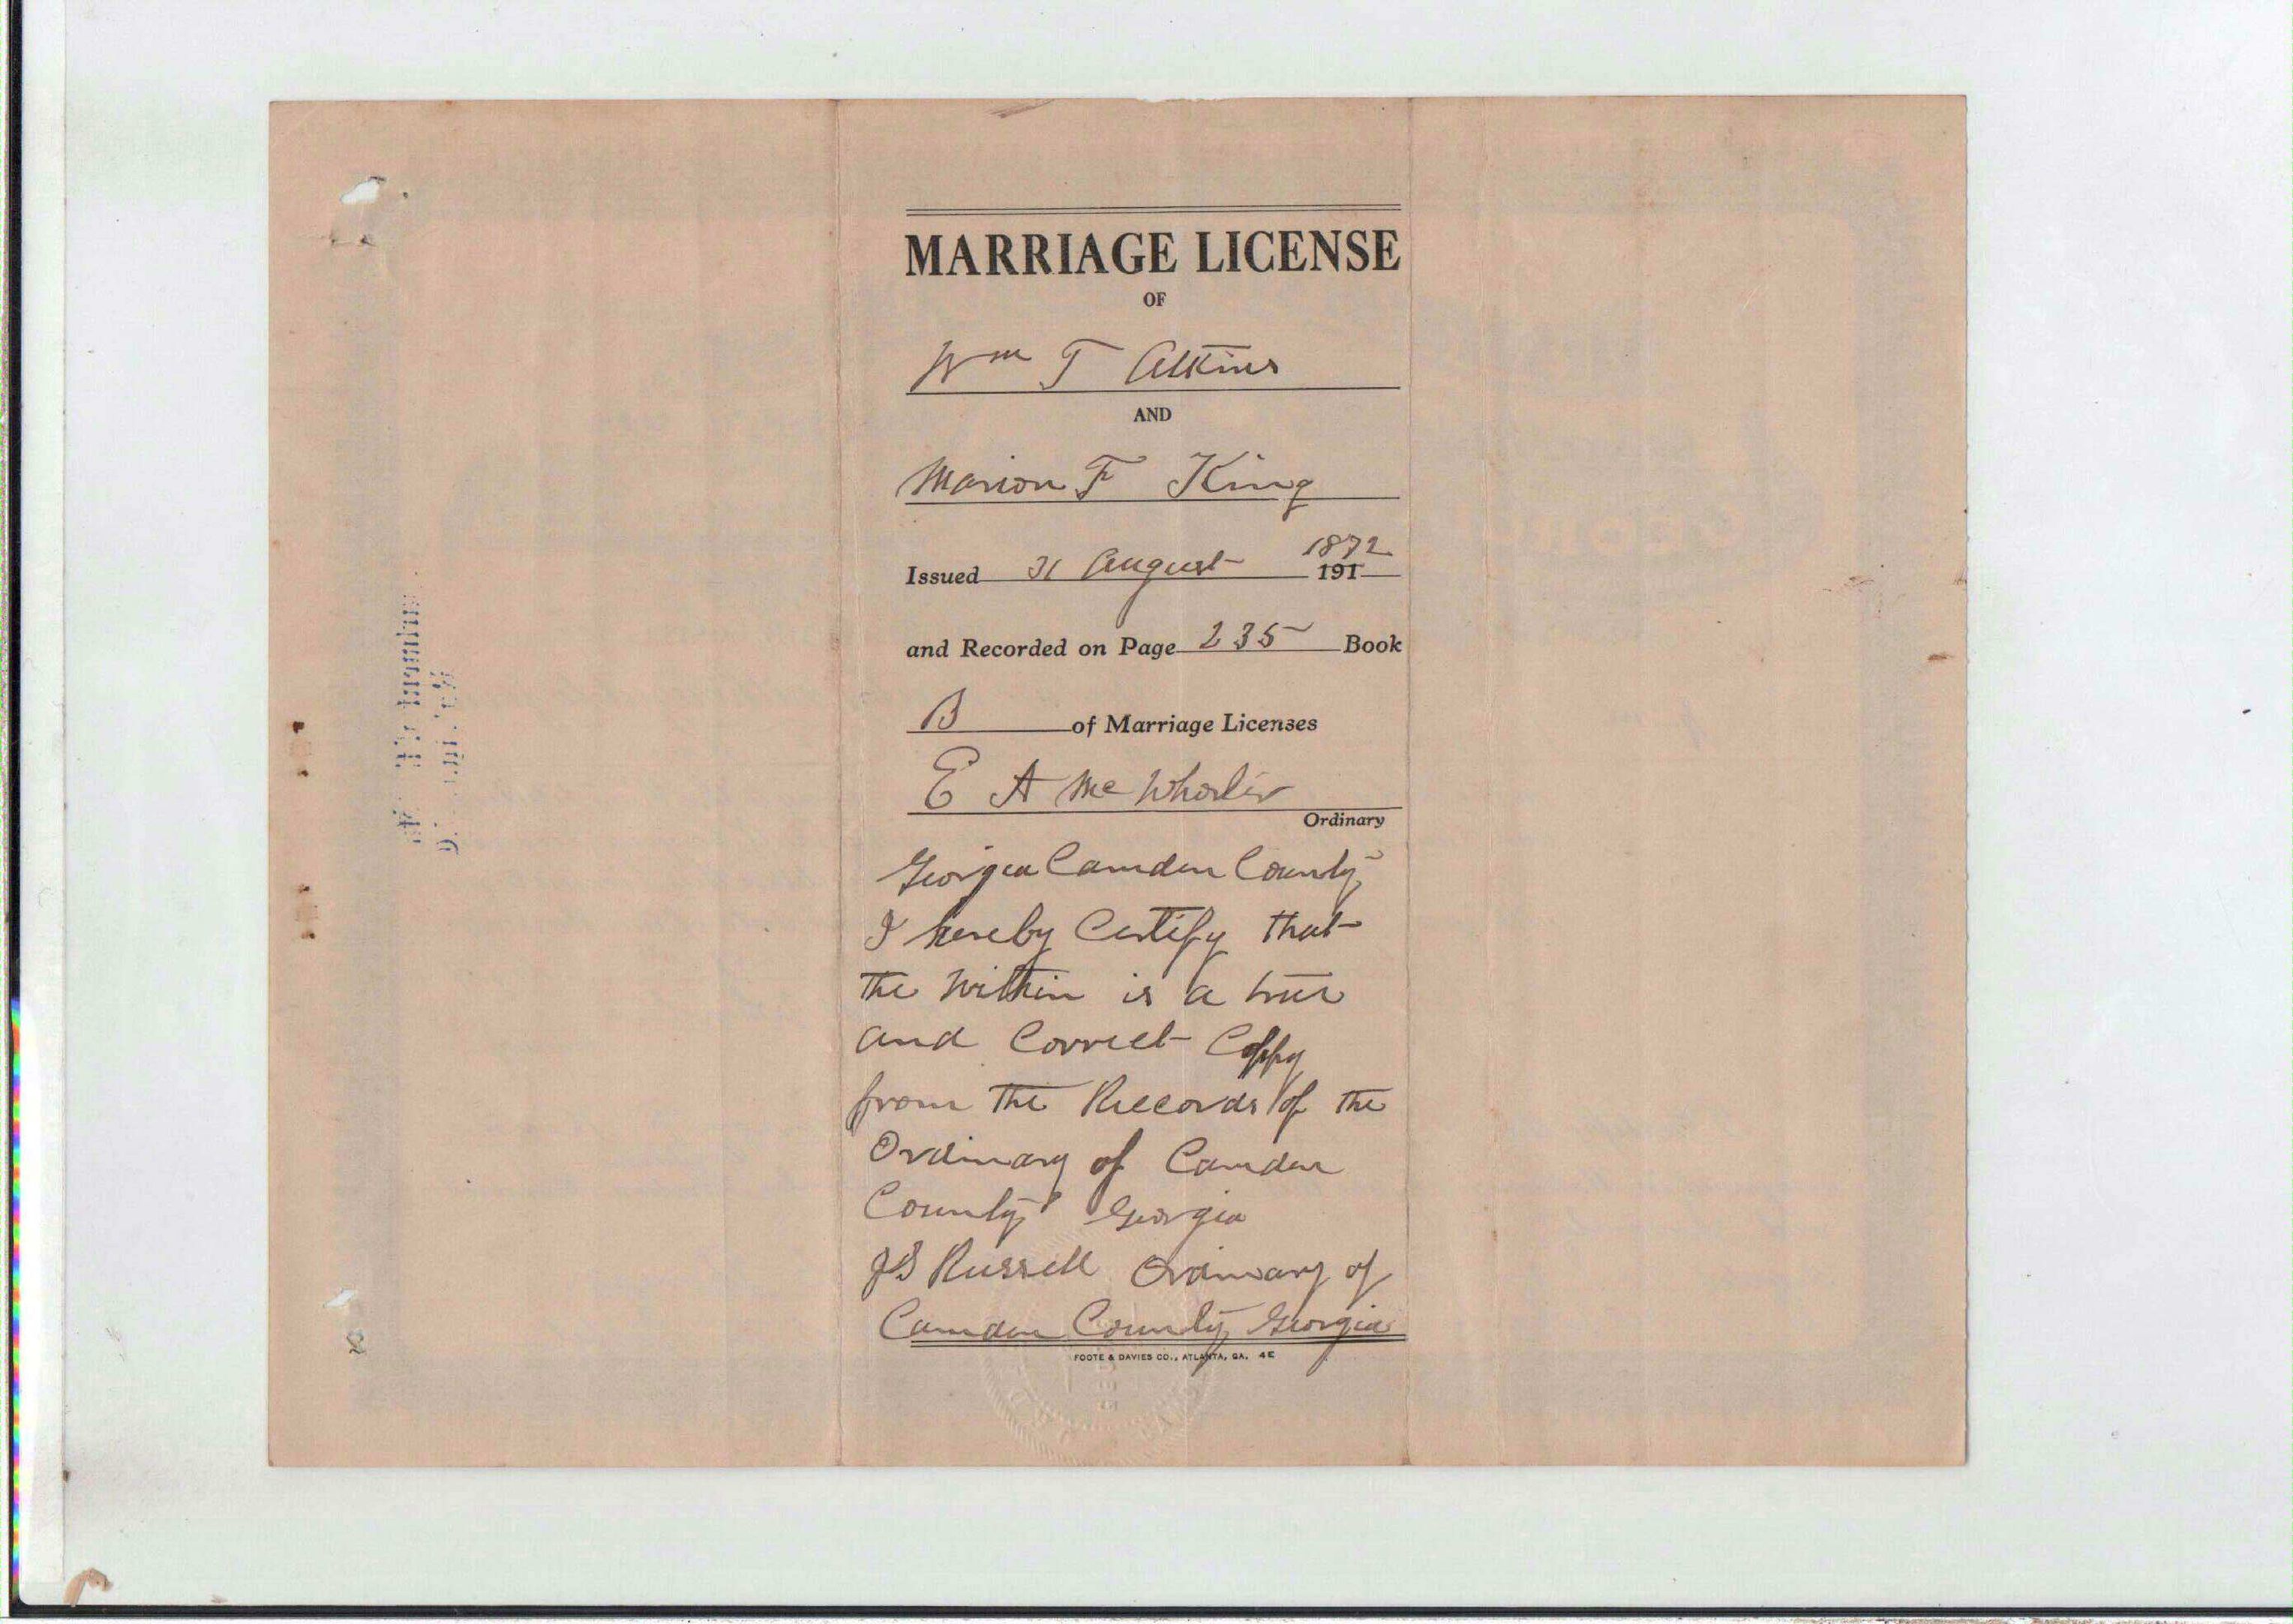 MARRIAGE LICENSE
OF
Wm T Atkins
AND
Marion F King
1872
Issued 31 August 191
and Recorded on Page 235 Book
B of Marriage Licenses
E A McWhorter
Ordinary
Georgia Camden County
I hereby Certify that
the within is a true
and Correct Coppy
from the Records of the
Ordinary of Camden
County Georgia
J S Russell Ordinary of
Camden County Georgia
FOOTE & DAVIES CO., ATLANTA, GA. 4E